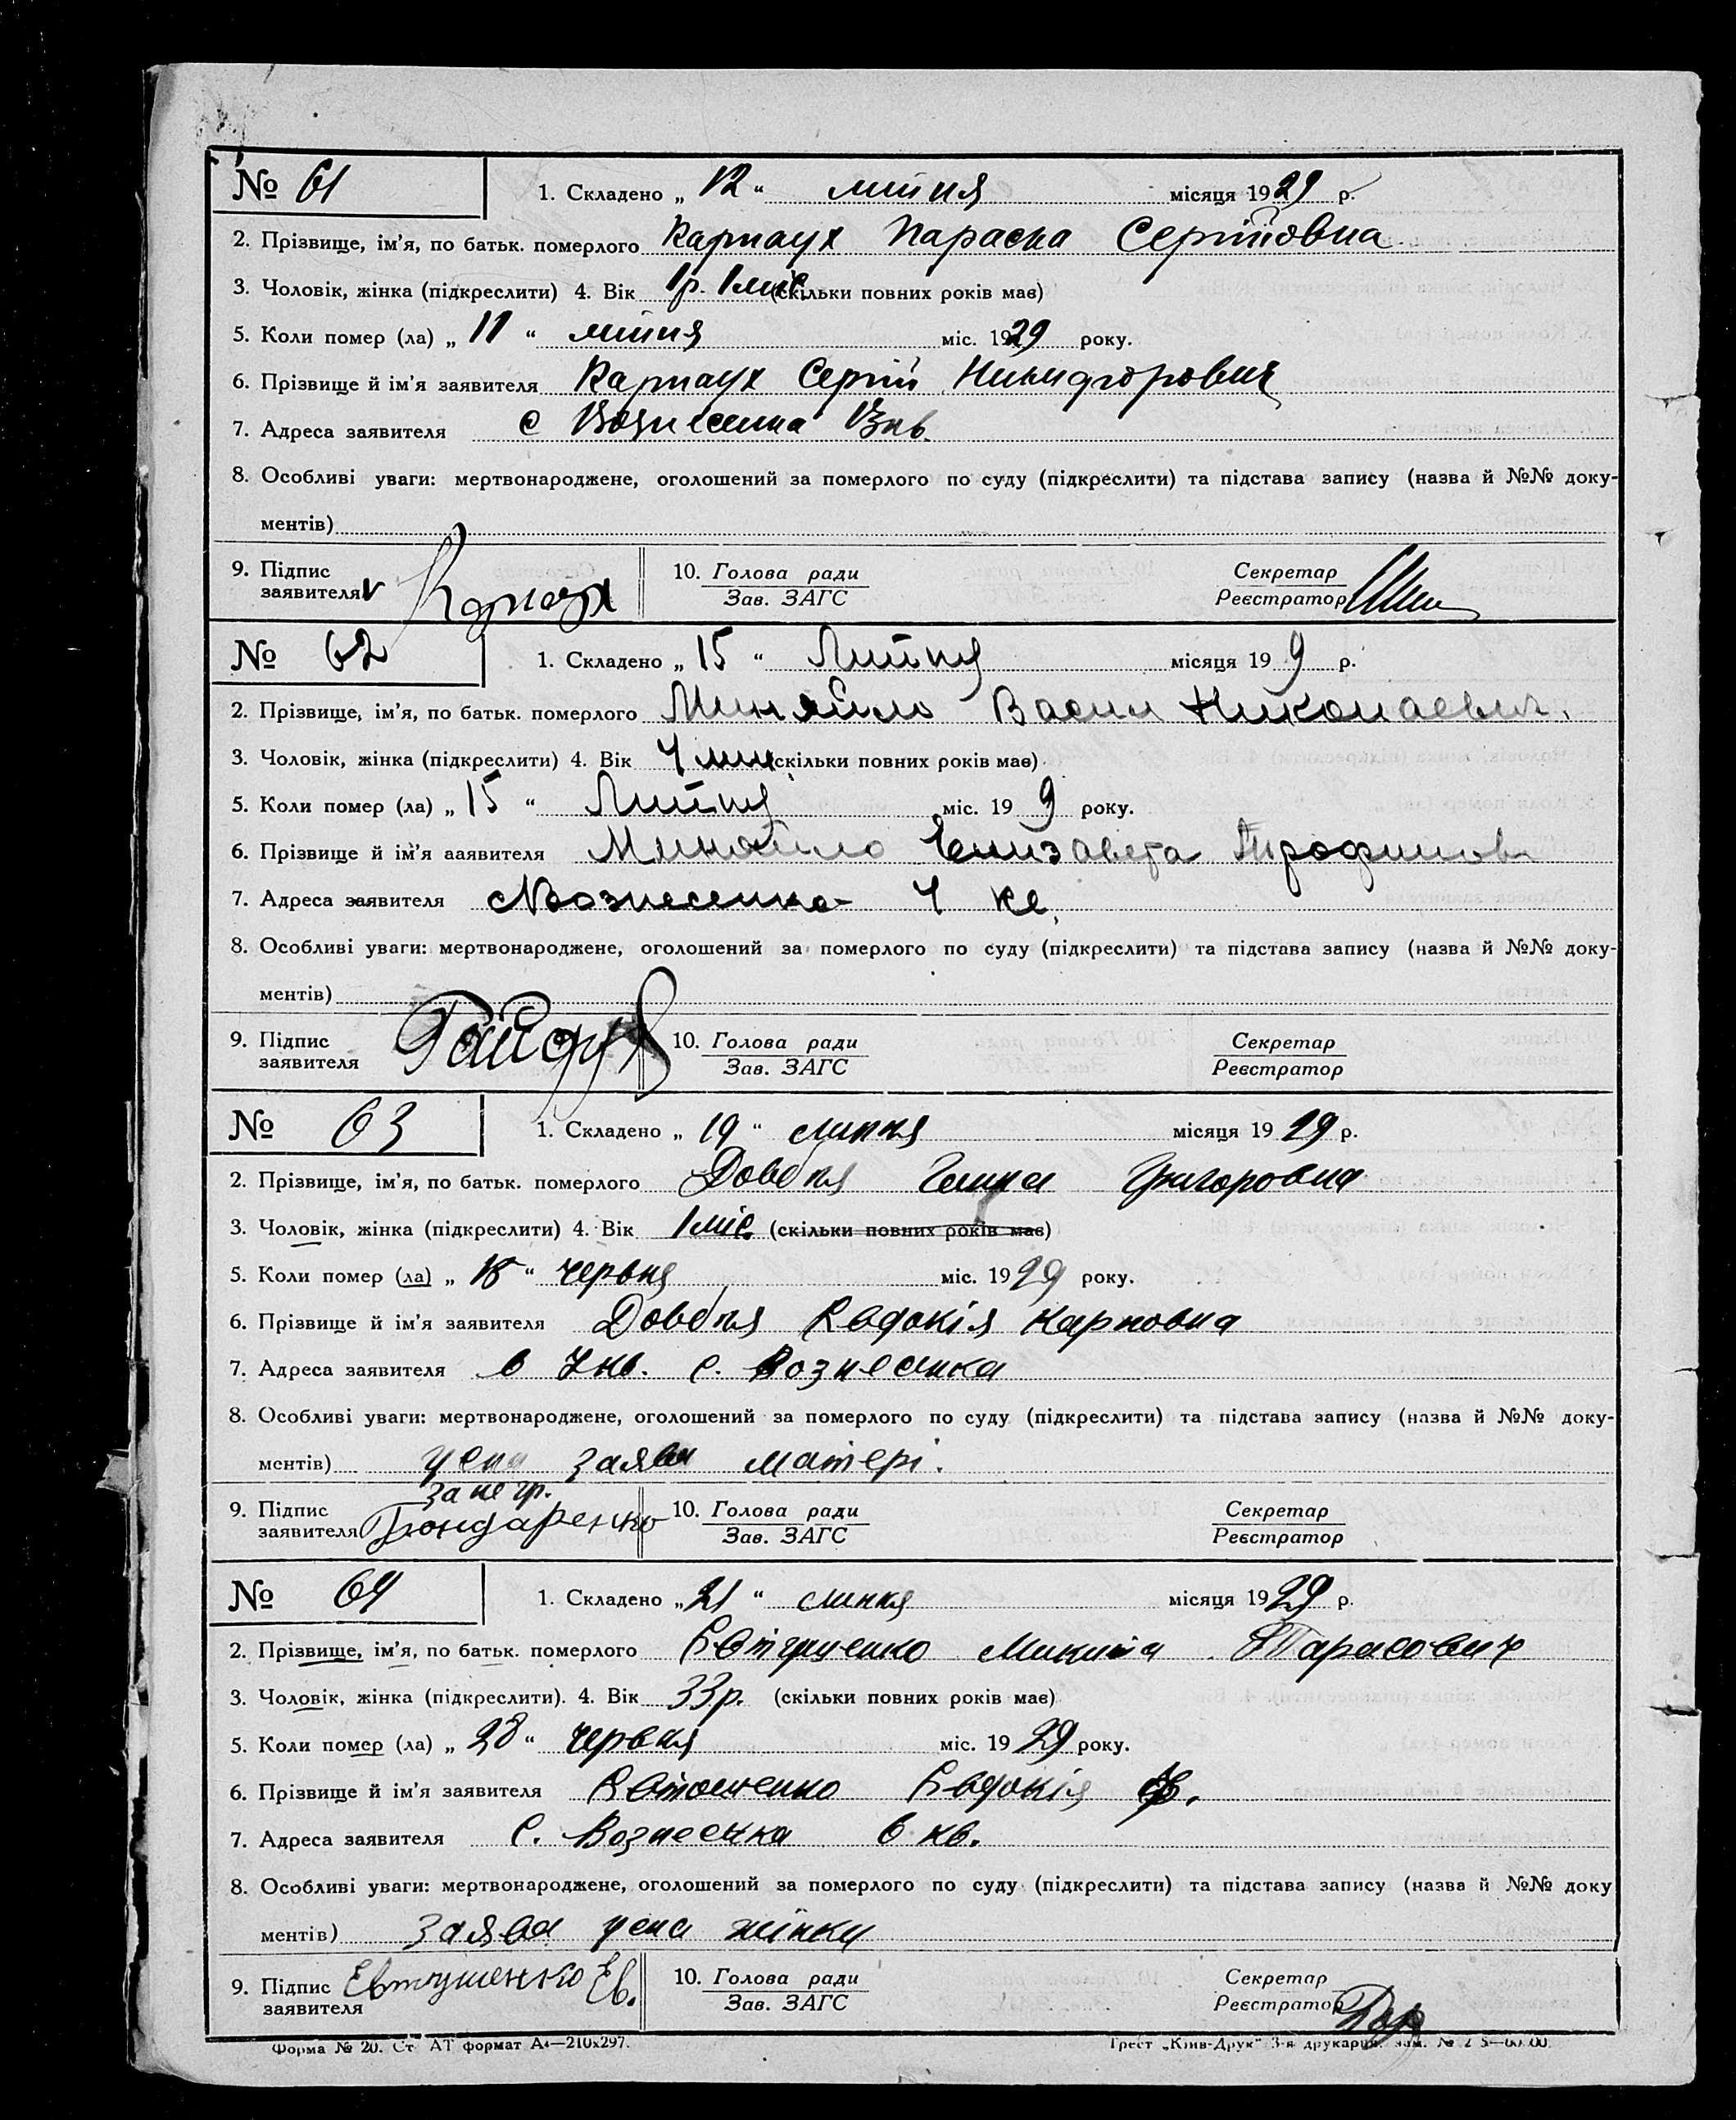 № 61 1. Складено „ 12 “ липня місяця 1929 р.
2. Прізвище, ім'я, по батьк. померлого Карнаух Параска Сергіївна
3. Чоловік, жінка (підкреслити) 4. Вік 1р. 1 міс. (скільки повних років має)
5. Коли помер (ла) „ 11 “ липня міс. 1929 року.
6. Прізвище й ім'я заявителя Карнаух Сергій Никифорович
7. Адреса заявителя с Вознесенка кв.
8. Особливі уваги: мертвонароджене, оголошений за померлого по суду (підкреслити) та підстава запису (назва й №№ доку-
ментів)
9. Підпис заявителя Карнаух 10. Голова ради Зав. ЗАГС Секретар Реєстратор
№ 62 1. Складено „ 15 “ Липня місяця 19 9 р.
2. Прізвище, ім'я, по батьк. померлого Миняйло Васил Николаевич.
3. Чоловік, жінка (підкреслити) 4. Вік 4 (скільки повних років має)
5. Коли помер (ла) „ 15 “ Липня міс. 19 9 року.
6. Прізвище й ім'я заявителя Миняйло Елизавета Трофимов
7. Адреса заявителя с Вознесенка 4 кв.
8. Особливі уваги: мертвонароджене, оголошений за померлого по суду (підкреслити) та підстава запису (назва й №№ доку-
ментів)
9. Підпис заявителя 10. Голова ради Зав. ЗАГС Секретар Реєстратор
№ 63 1. Складено „ 19 “ липня місяця 19 29 р.
2. Прізвище, ім'я, по батьк. померлого Довбня Григоровна
3. Чоловік, жінка (підкреслити) 4. Вік 1 міс. (скільки повних років має)
5. Коли помер (ла) „ 18 “ червня міс. 19 29 року.
6. Прізвище й ім'я заявителя Довбня Евдокія Карповна
7. Адреса заявителя в 7 кв. с. Вознесенка
8. Особливі уваги: мертвонароджене, оголошений за померлого по суду (підкреслити) та підстава запису (назва й №№ доку-
ментів) усна заява матері.
за негр.
9. Підпис заявителя Бондаренко 10. Голова ради Зав. ЗАГС Секретар Реєстратор
№ 64 1. Складено „ 21 “ липня місяця 1929 р.
2. Прізвище, ім'я, по батьк. померлого Евтушенко Микита Тарасович
3. Чоловік, жінка (підкреслити). 4. Вік 33р. (скільки повних років має)
5. Коли помер (ла) „ 28 “ червня міс. 19 29 року.
6. Прізвище й ім'я заявителя Евтошенко Евдокія Ф.
7. Адреса заявителя с. Вознесенка 6 кв.
8. Особливі уваги: мертвонароджене, оголошений за померлого по суду (підкреслити) та підстава запису (назва й №№ доку
ментів) заява усна жінки
9. Підпис заявителя Евтушенко Ев. 10. Голова ради Зав. ЗАГС Секретар Реєстратор
Форма № 20. Ст АТ формат А4—210х297. Трест „Київ-Друк“ 3-я друкарня.